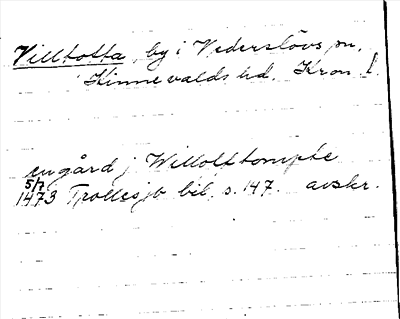 Villtotta, by i Vederslövs sn.
Kinnevalds hd. Kron. l.
en gård j Willolttompte
5/7
1473 Trollesjö bil. s. 147. avskr.